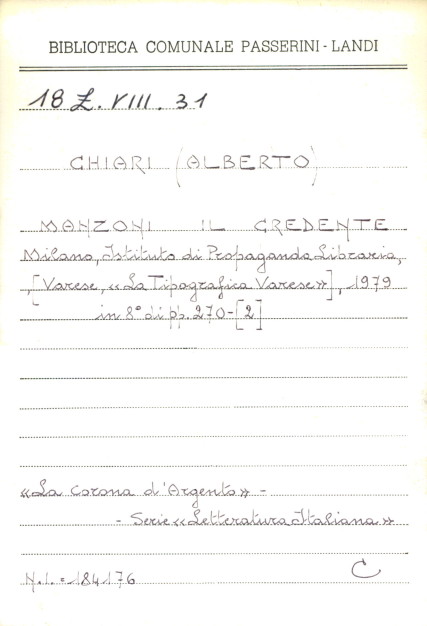 BIBLIOTECA COMUNALE PASSERINI - LANDI
18 Z. VIII. 31
CHIARI (ALBERTO)
MANZONI IL CREDENTE
Milano, Istituto di Propaganda Libraria,
, [Varese, «La Tipografica Varese»], 1979
in 8° di pp. 270-[2]
«La corona d'Argento» -
- Serie «Letteratura Italiana»
N.I. = 184176
C